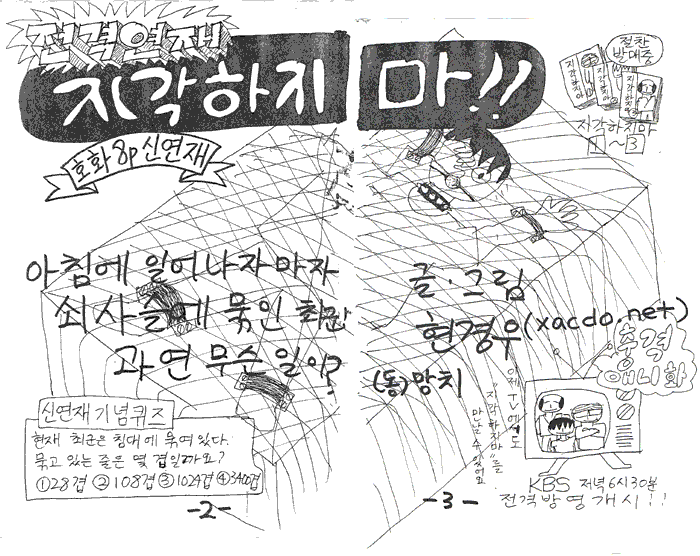 전격연재
지각하지 마!!
호화 8p 신연재
절찬
발매중
지각하지마
지각하지마
지각하지마
1 ~ 3
아침에 일어나자 마자
쇠사슬에 묶인 최군
과연 무슨 일이?
글·그림
현경우(xacdo.net)
(동)망치
신연재기념퀴즈
현재 최군은 침대에 묶여있다.
묶고 있는 줄은 몇 겹일까요?
①28겹 ②108겹 ③1024겹 ④3400겹
-2-
-3-
이제 TV에서도
"지각하지마"를
만날 수 있어요
충격
애니화
KBS 저녁 6시30분
전격방영개시!!